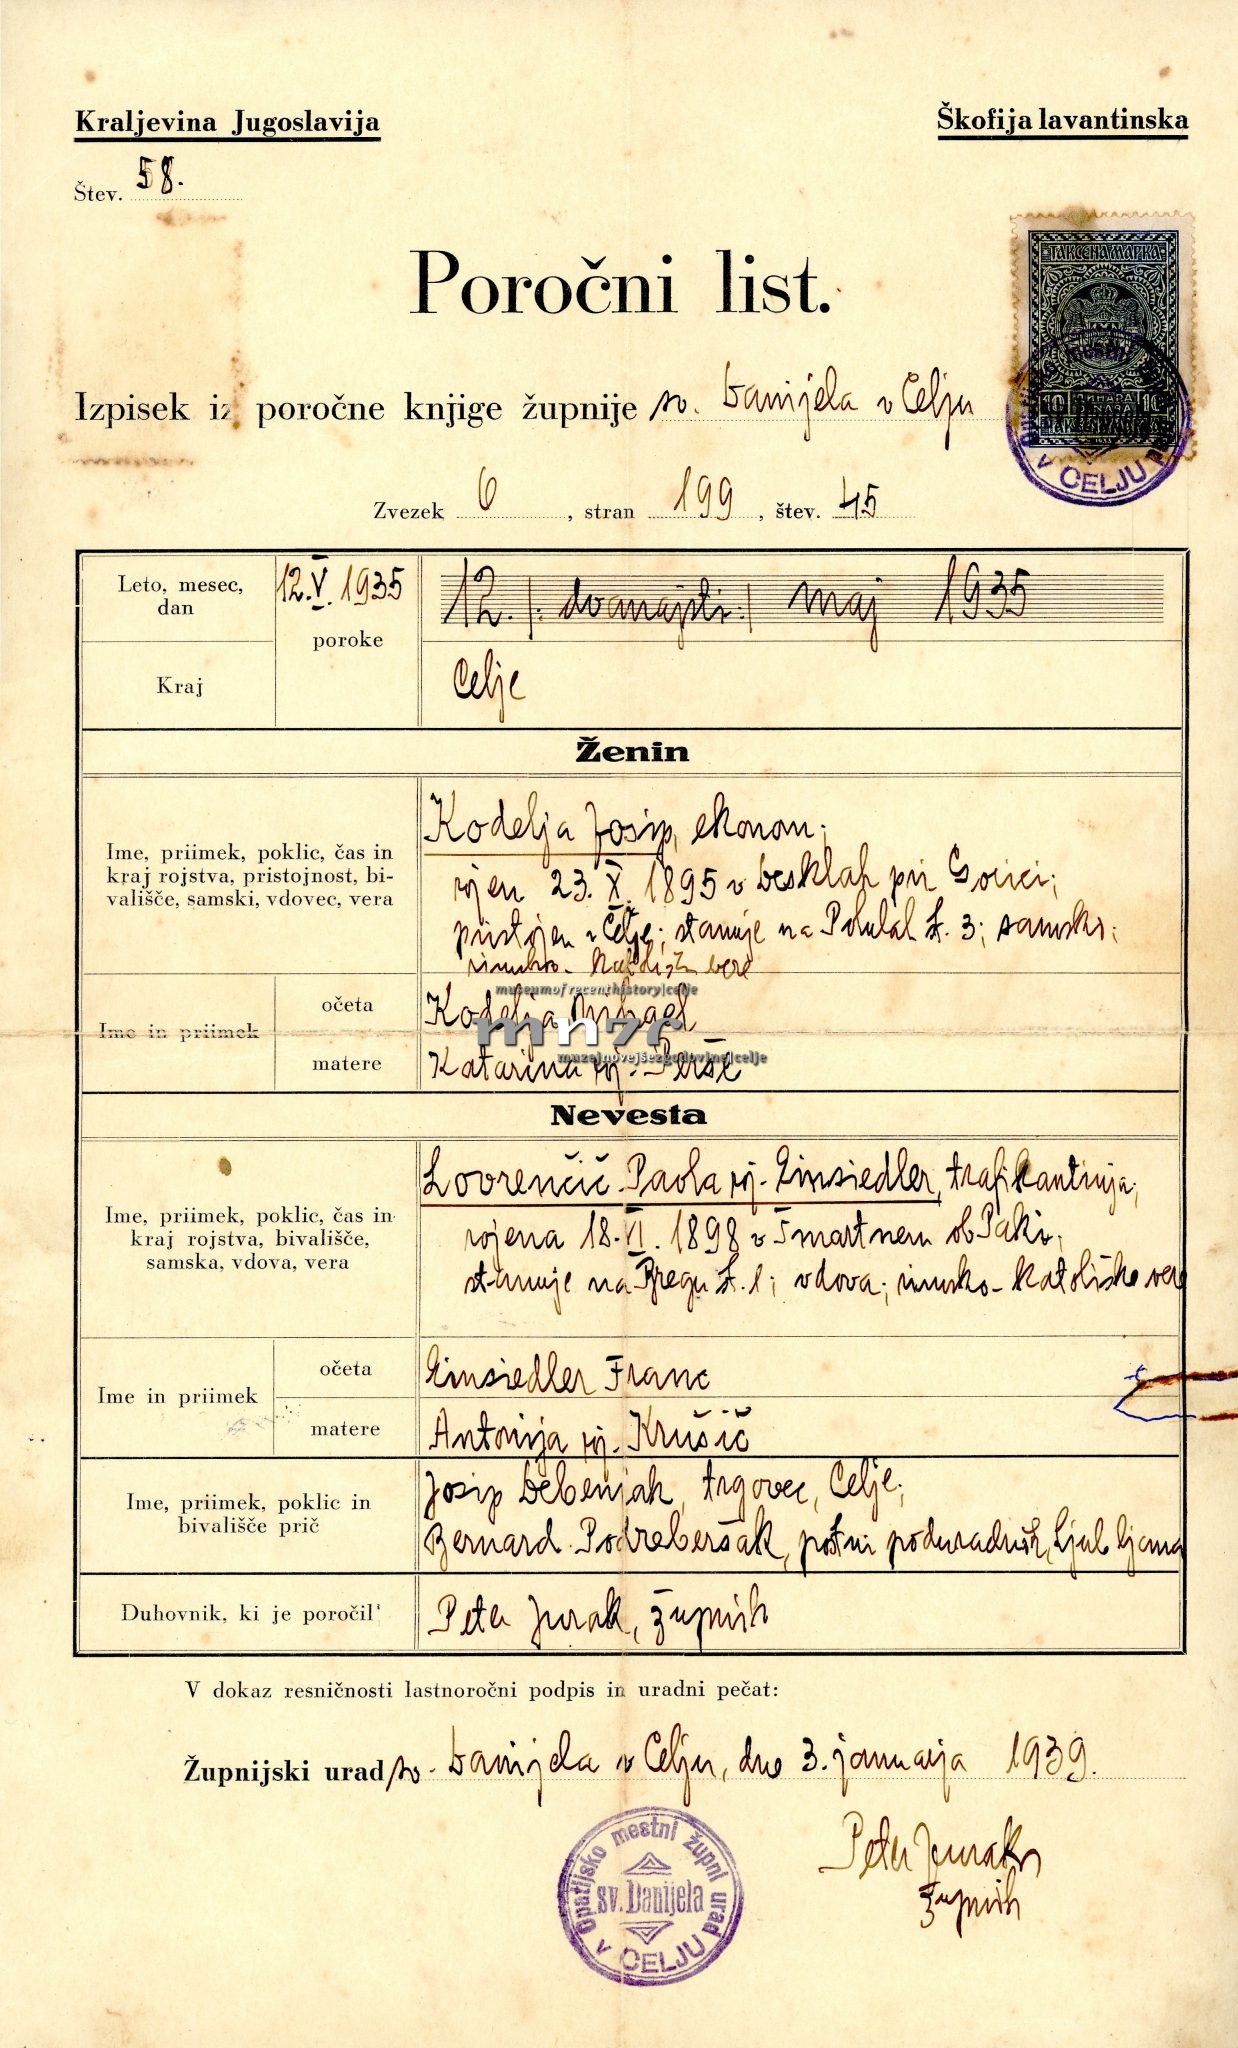 Kraljevina Jugoslavija
Škofija lavantinska
Štev. 58.
ТАКСЕНА МАРКА
10 10
Poročni list.
Izpisek iz poročne knjige župnije sv. Danijela v Celju
V CELJU
Zvezek 6, stran 199, štev. 45
Leto, mesec, dan
12.V.1935
poroke
12. /: dvanajsti :/ maj 1935
Kraj
Celje
Ženin
Ime, priimek, poklic, čas in
kraj rojstva, pristojnost, bi-
vališče, samski, vdovec, vera
Kodelja Josip, ekonom;
rojen 23. X. 1895 v pri Gorici;
pristojen v Celje; stanuje na št. 3; samski;
rimsko- katoliške vere
museumofrecenthistory|celje
Ime in priimek
očeta
Kodelja Mihael
mnzc
muzejnovejšezgodovine|celje
matere
Katarina roj. Perše
Nevesta
Ime, priimek, poklic, čas in
kraj rojstva, bivališče,
samska, vdova, vera
Lovrenčič Paola roj. Einsiedler, trafikantinja;
rojena 18. VI. 1898 v Šmartnem ob Paki;
stanuje na Bregu št. 1; vdova; rimsko- katoliške vere
Ime in priimek
očeta
Einsiedler Franc
matere
Antonija roj. Krušič
Ime, priimek, poklic in
bivališče prič
Josip Debenjak, trgovec, Celje;
Bernard Podrebersak, poštni poduradnik, Ljubljana
Duhovnik, ki je poročil
Peter Jurak, župnik
V dokaz resničnosti lastnoročni podpis in uradni pečat:
Župnijski urad sv. Danijela v Celju, dne 3. januarja 1939.
Opatijsko mestni župni urad
sv. Danijela
V CELJU
Peter Jurak
župnik